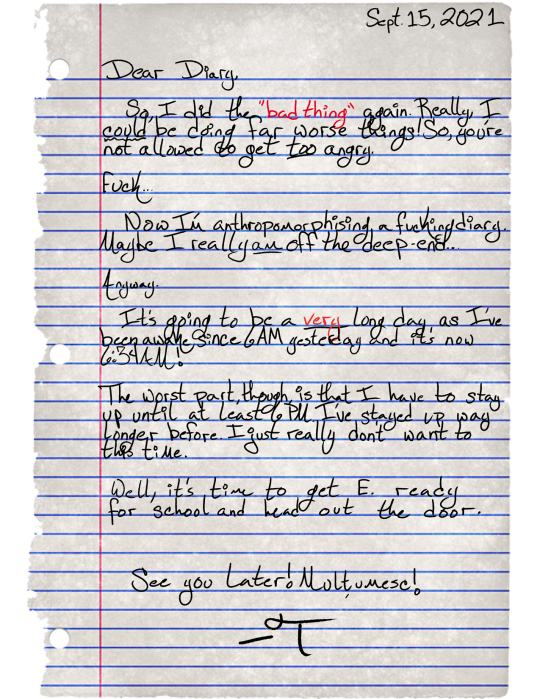 Sept. 15, 2021
Dear Diary,
So, I did the "bad thing" again. Really, I
could be doing far worse things! So, you're
not allowed to get too angry.
Fuck...
Now I'm anthropomorphising a fucking diary.
Maybe I really am off the deep-end...
Anyway.
It's going to be a very long day as I've
been awake since 6AM yesterday and it's now
6:34AM!
The worst part, though, is that I have to stay
up until at least 6PM. I've stayed up way
longer before. I just really don't want to
this time.
Well, it's time to get E. ready
for school and head out the door.
See you Later! Mulțumesc!
-T